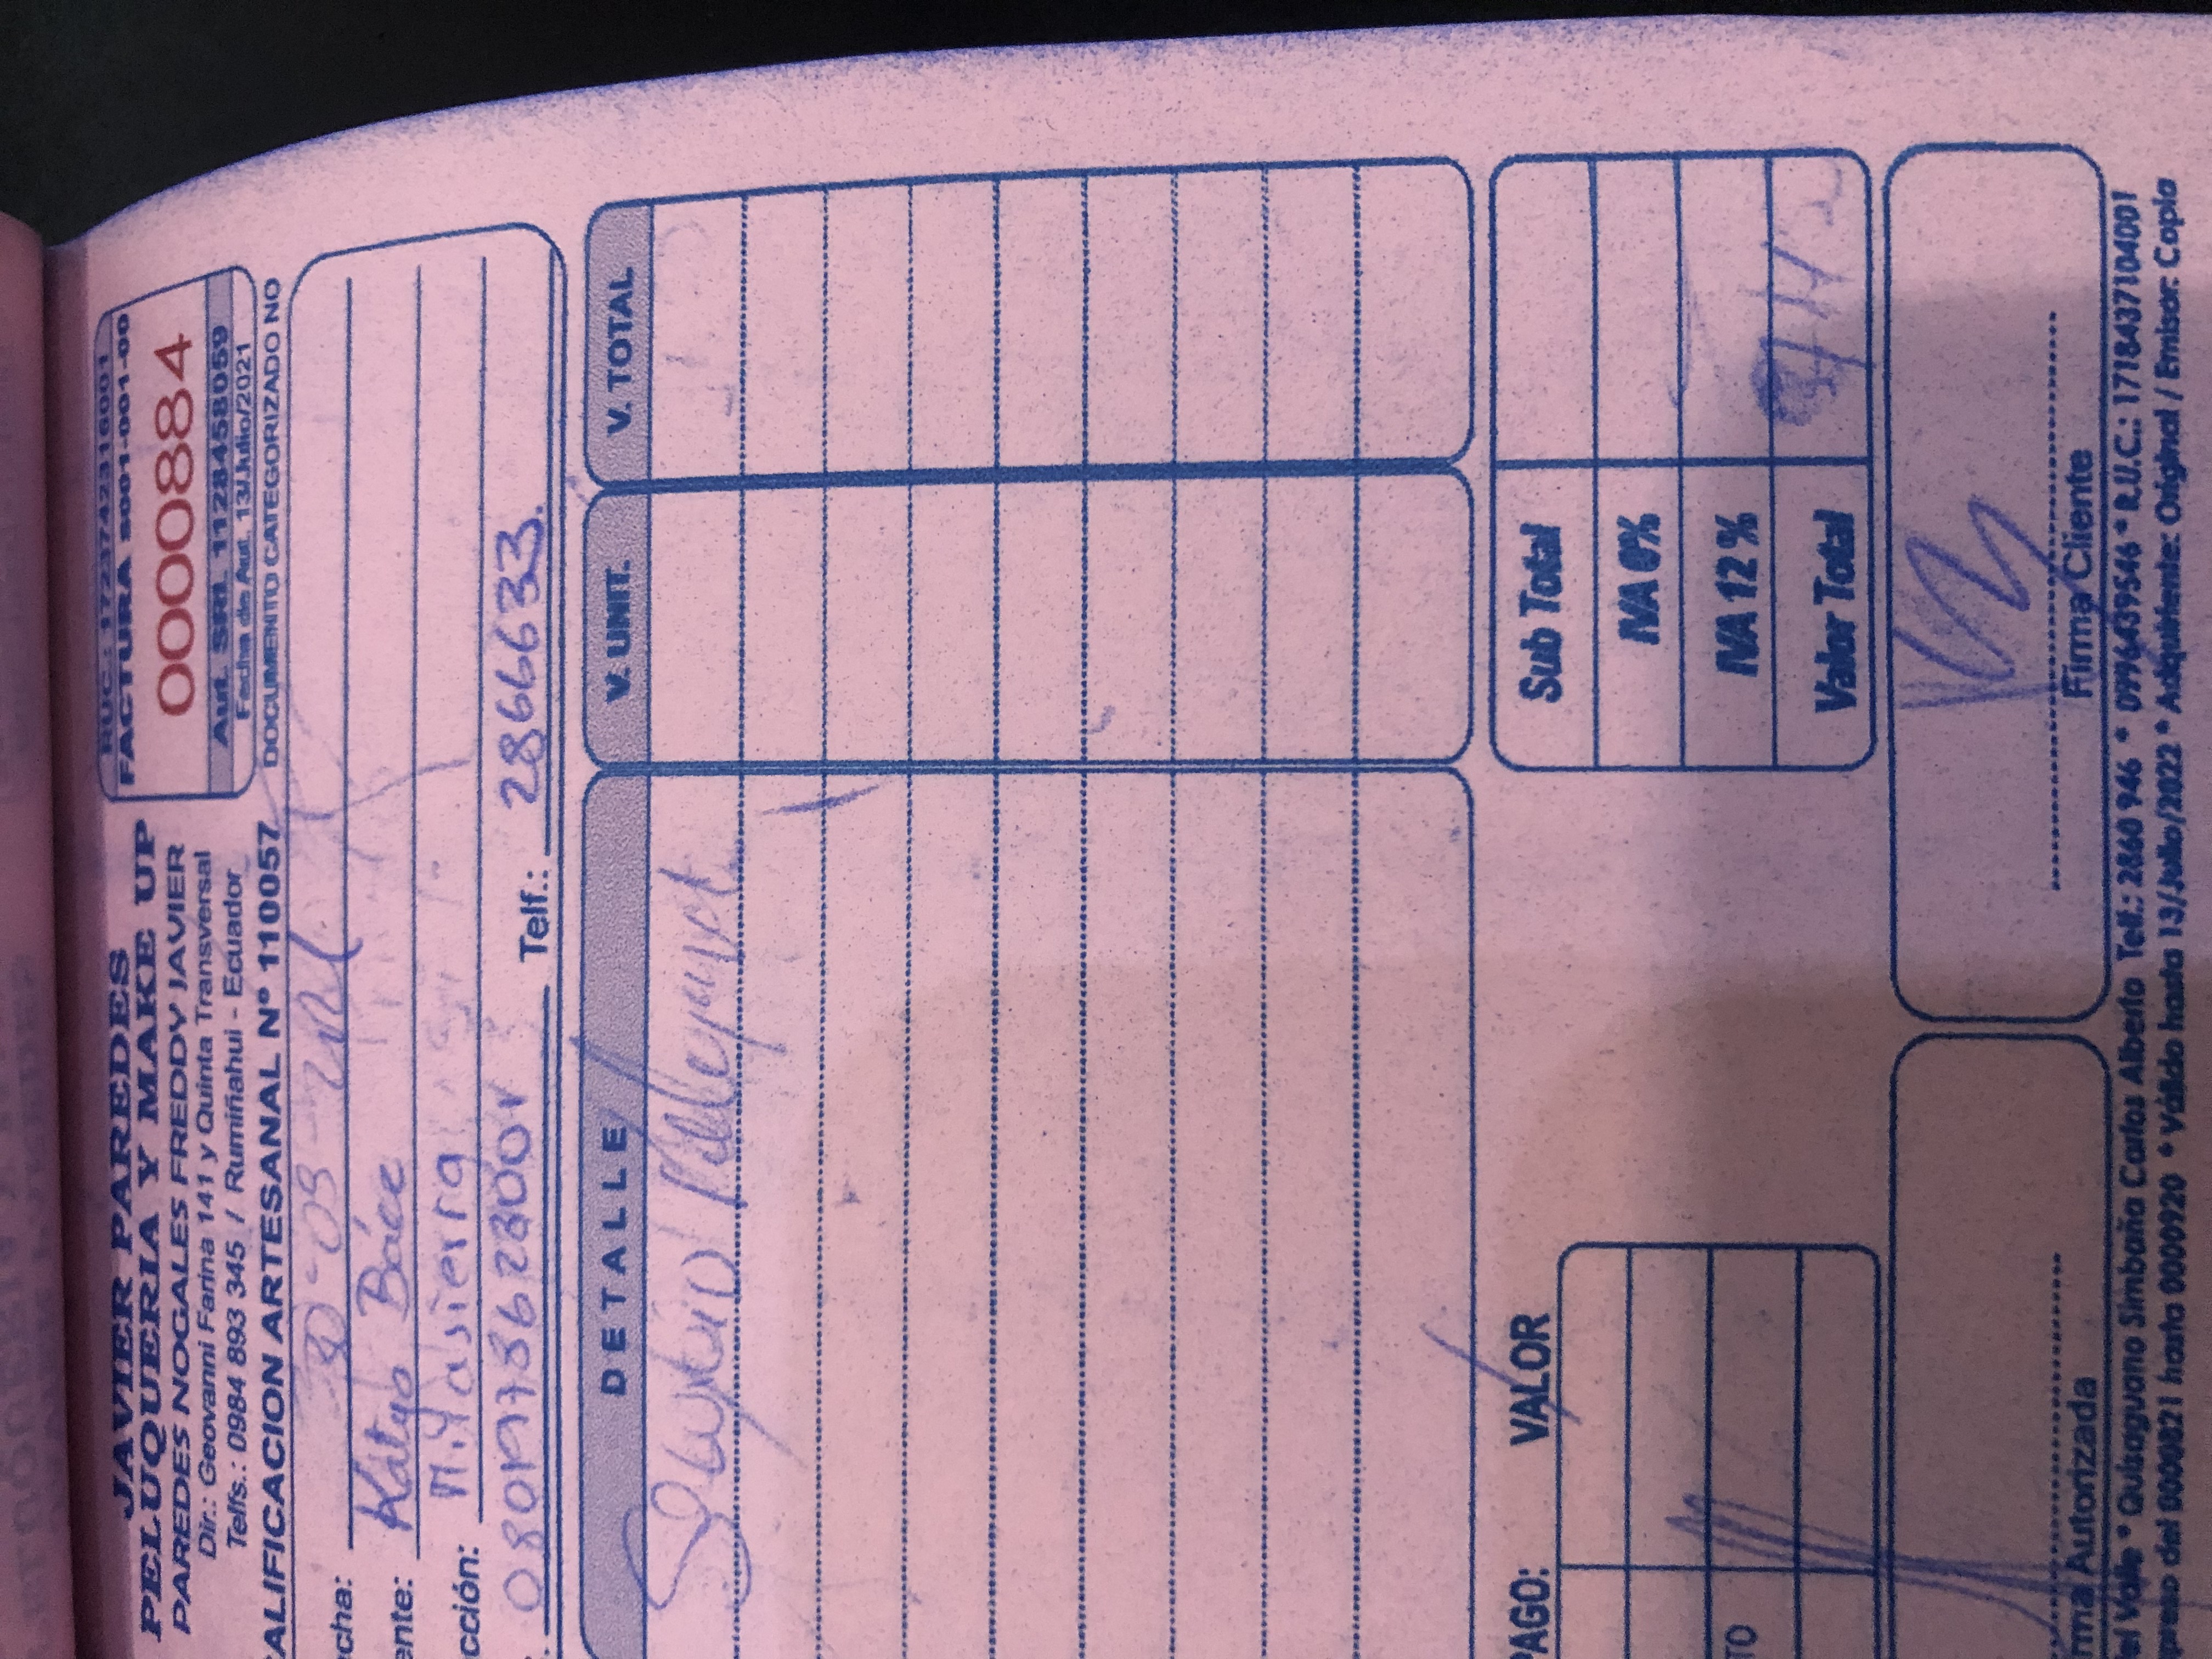 JAVIER PAREDES
PELUQUERIA Y MAKE UP
PAREDES NOGALES FREDDY JAVIER
Dir.: Geovanni Farina 141 y Quinta Transversal
Telfs.: 0984 893 345 / Rumiñahui - Ecuador
CALIFICACION ARTESANAL Nº 110057
RUC.: 1723742316001
FACTURA S001-001-00
0000884
Aut. SRI. 1128458059
Fecha de Aut. 13/Julio/2021
DOCUMENTO CATEGORIZADO NO
echa: 30-03-
ente: Katya Báez
cción: Mirasierra
Telf.: 2866633.
DETALLE V. UNIT. V. TOTAL
PAGO: VALOR
Sub Total
IVA 0%
IVA 12 %
Valor Total
TO
rma Autorizada
Firma Cliente
el Valle * Quisaguano Simbaña Carlos Alberto Telf.: 2860 946 * 0996439546 * R.U.C.: 1718437104001
preso del 0000821 hasta 0000920 * Válido hasta 13/Julio/2022 * Adquiriente: Original / Emisor: Copia